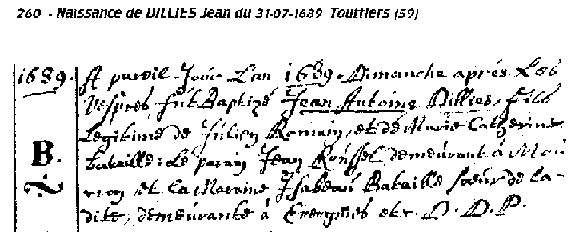 260 - Naissance de DILLIES Jean du 31-07-1689 Toufflers (59)
1689. A pareil Jour L'an 1689 Dimanche après Les
Vespres fut Baptizé Jean Antoine Dillies fils
Legitime de Julien Romain et de Marie Catherine
B. bataille: Le parain Jean Roussel demeurant à Mou
et La Maraine Isabeau Bataille soeur de la
dite, demeurante à et. D. D. P.